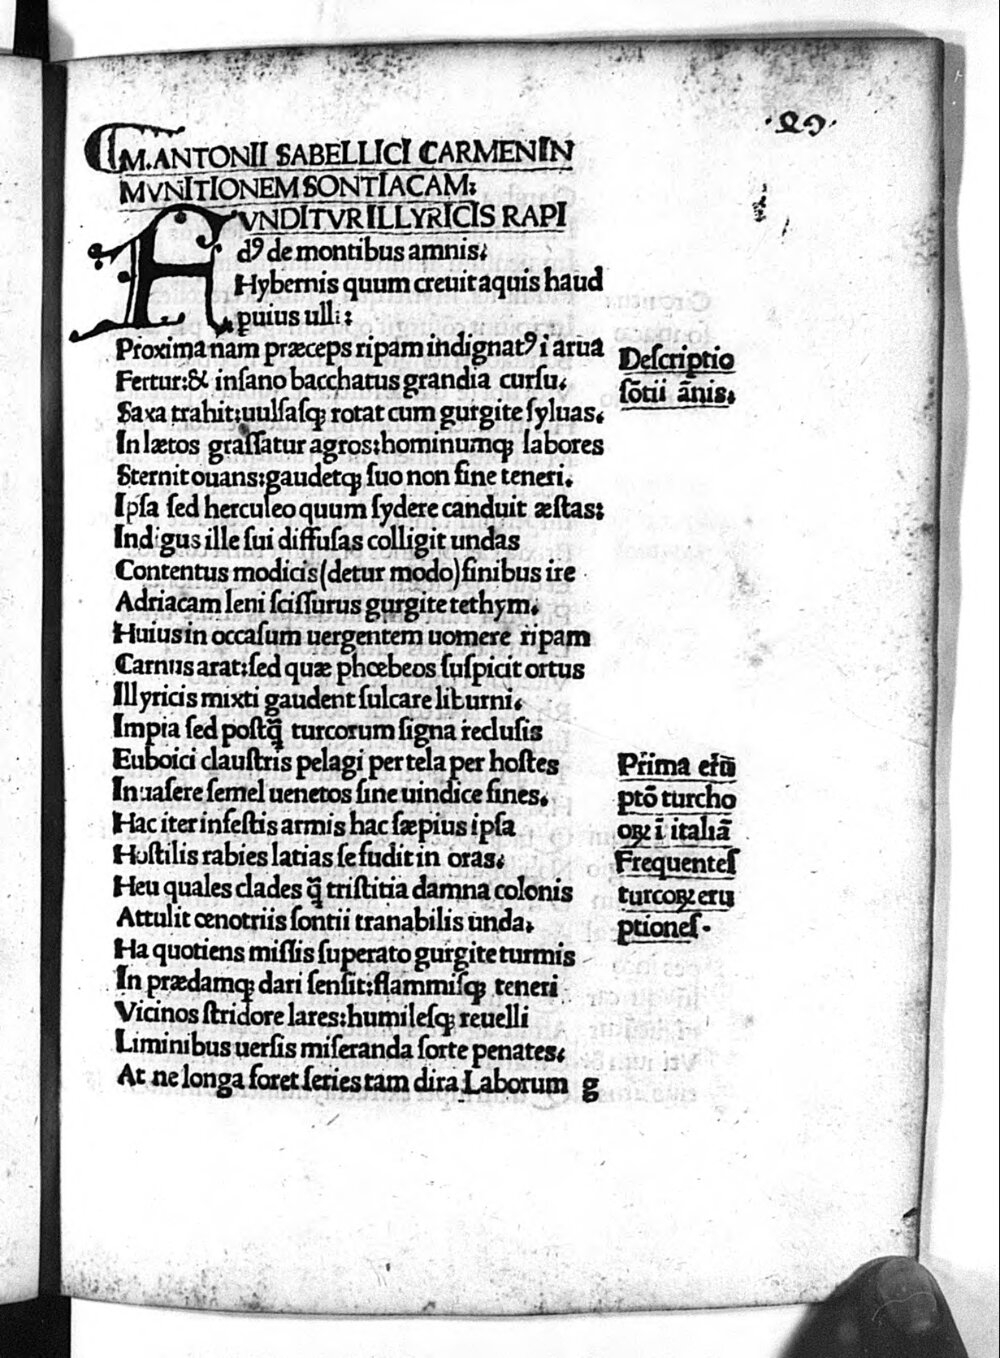 M. ANTONII SABELLICI CARMEN IN
MVNITIONEM SONTIACAM:
FVNDITVR ILLYRICIS RAPI
dꝰ de montibus amnis:
Hybernis quum creuit aquis haud
puius ulli:
Proxima nam præceps ripam indignatꝰ ī arua
Fertur: & insano bacchatus grandia cursu.
Saxa trahit: uulsasqꝫ rotat cum gurgite syluas.
In lætos grassatur agros: hominumqꝫ labores
Sternit ouans: gaudetqꝫ suo non fine teneri.
Ipsa sed herculeo quum sydere canduit æstas:
Indigus ille sui diffusas colligit undas
Contentus modicis (detur modo) finibus ire
Adriacam leni scissurus gurgite tethym.
Huius in occasum uergentem uomere ripam
Carnus arat: sed quæ phœbeos suspicit ortus
Illyricis mixti gaudent sulcare liburni.
Impia sed postq̄ turcorum signa reclusis
Euboici claustris pelagi per tela per hostes
Inuasere semel uenetos sine uindice fines.
Hac iter infestis armis hac sæpius ipsa
Hostilis rabies latias se fudit in oras.
Heu quales clades q̄ tristitia damna colonis
Attulit œnotriis sontii tranabilis unda.
Ha quotiens missis superato gurgite turmis
In prædamqꝫ dari sensit: flammisqꝫ teneri
Vicinos stridore lares: humilesqꝫ reuelli
Liminibus uersis miseranda sorte penates.
At ne longa foret series tam dira Laborum g
Descriptio
sōtii ānis.
Prima erū
ptō turcho
oꝝ ī italiā
Frequentes
turcoꝝ eru
ptiones.